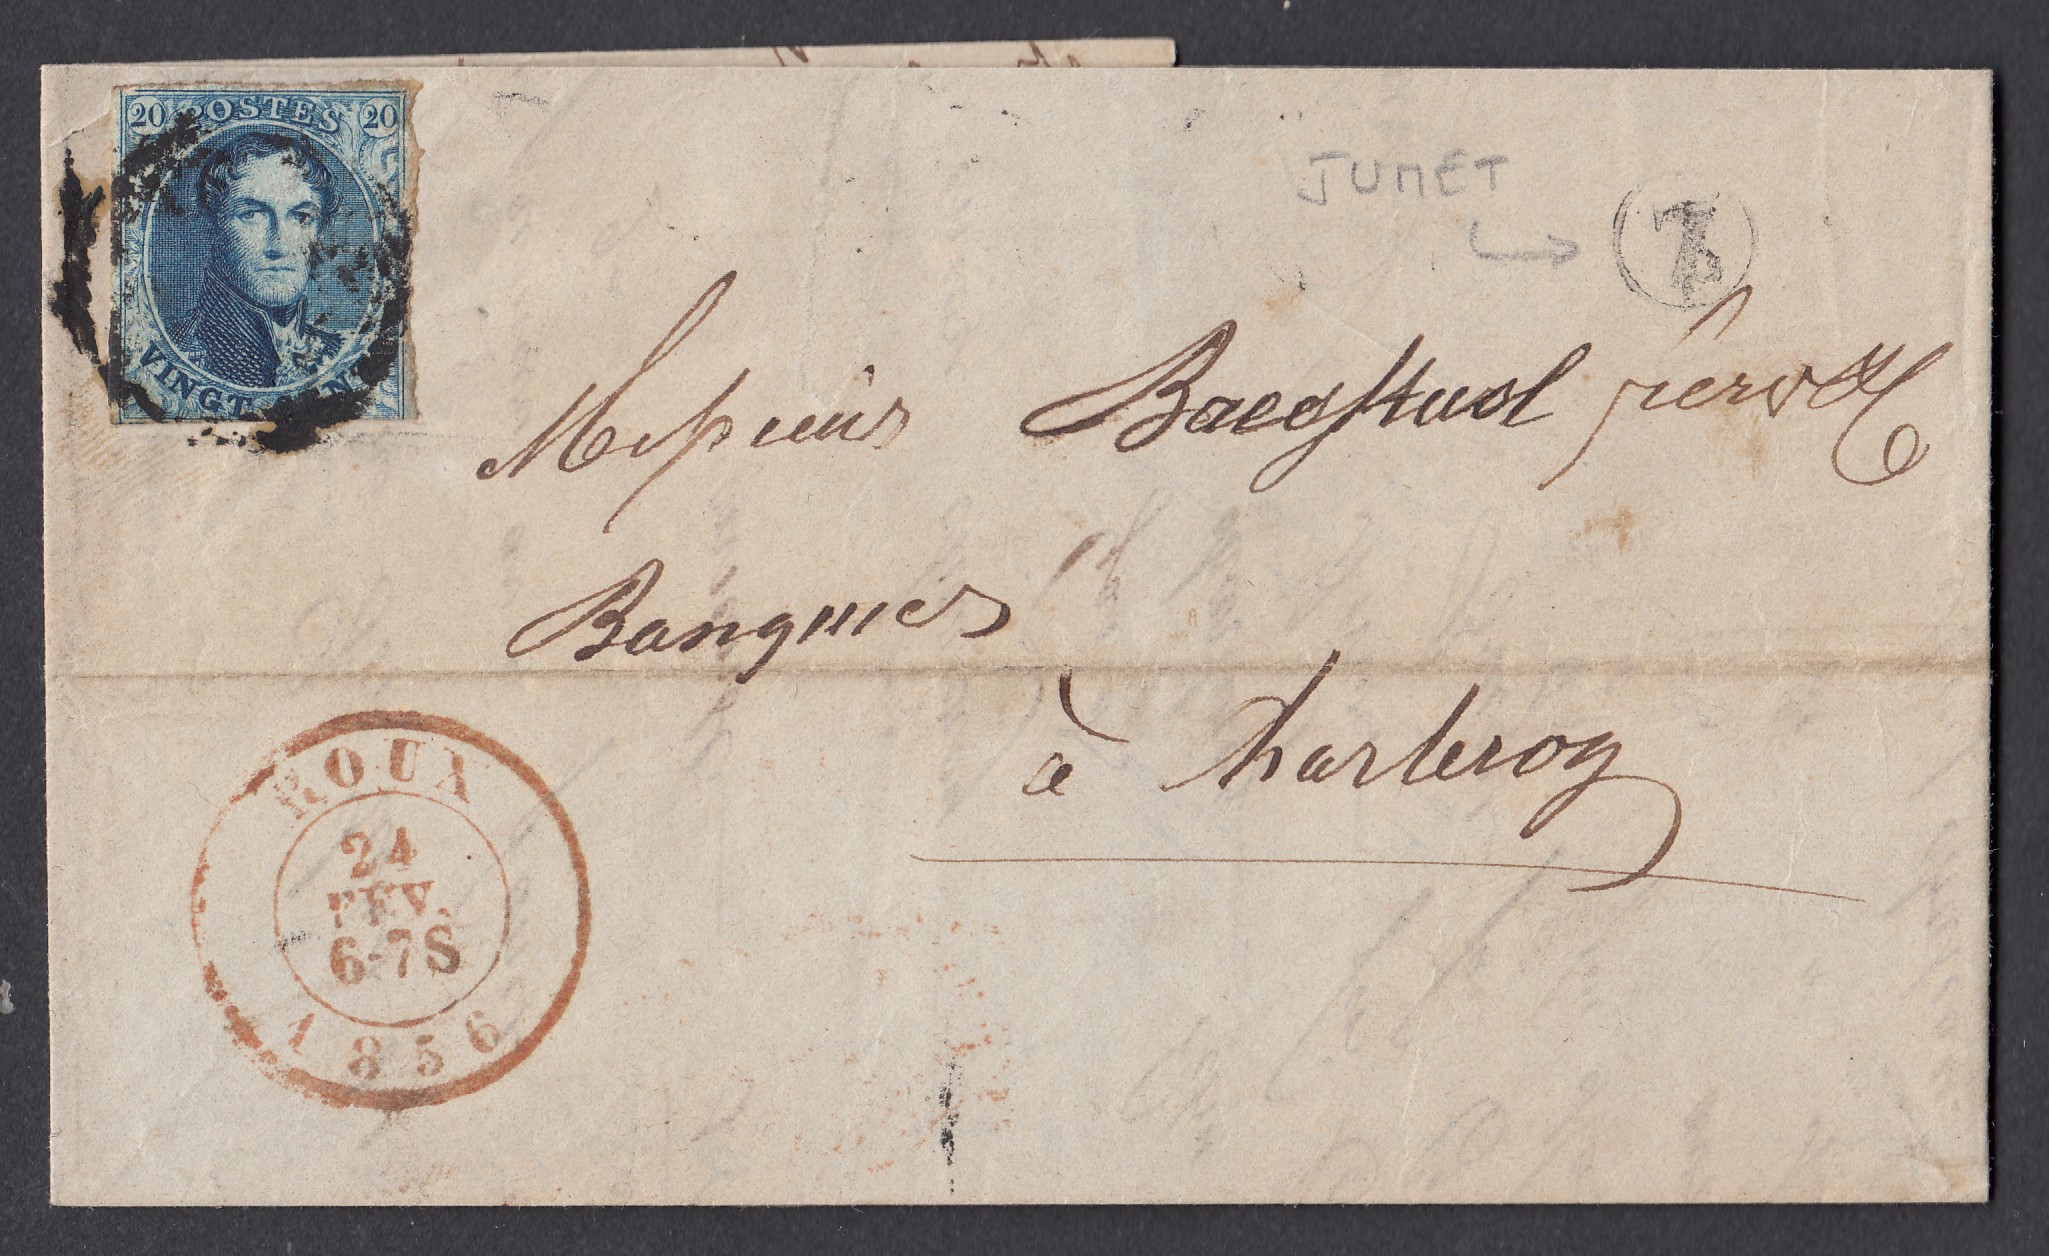 20 POSTES 20
VINGT CENT
JUMET
Messieurs Baedstuol frères & C
Banquiers
à Charleroy
ROUX
24
FEV.
6-7S
1856